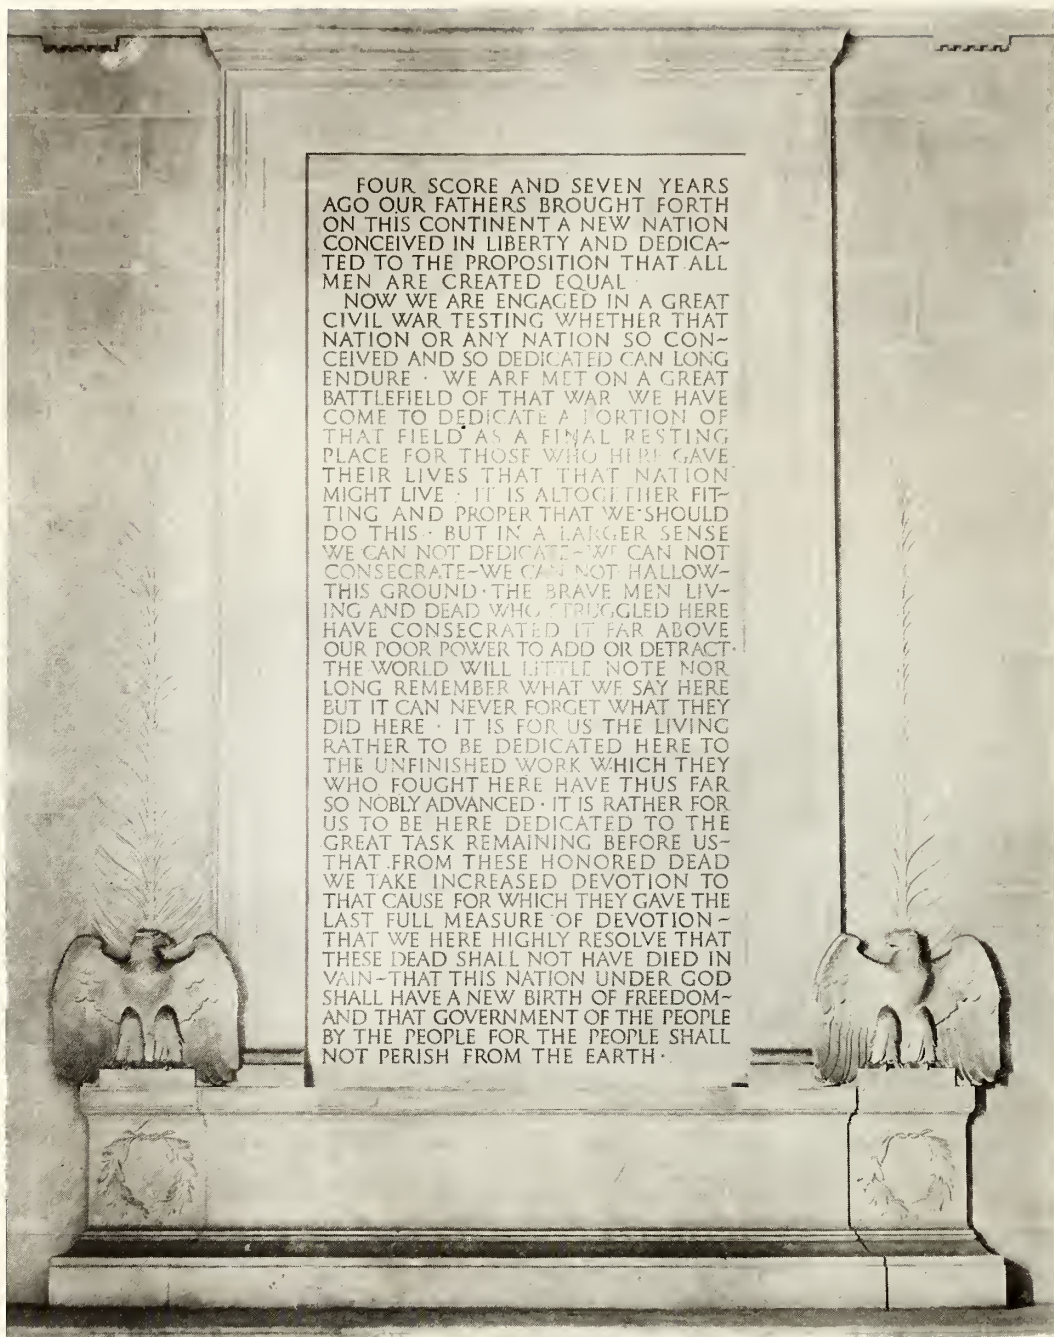 FOUR SCORE AND SEVEN YEARS
AGO OUR FATHERS BROUGHT FORTH
ON THIS CONTINENT A NEW NATION
CONCEIVED IN LIBERTY AND DEDICA~
TED TO THE PROPOSITION THAT ALL
MEN ARE CREATED EQUAL ·
NOW WE ARE ENGAGED IN A GREAT
CIVIL WAR TESTING WHETHER THAT
NATION OR ANY NATION SO CON~
CEIVED AND SO DEDICATED CAN LONG
ENDURE · WE ARE MET ON A GREAT
BATTLEFIELD OF THAT WAR WE HAVE
COME TO DEDICATE A PORTION OF
THAT FIELD AS A FINAL RESTING
PLACE FOR THOSE WHO HERE GAVE
THEIR LIVES THAT THAT NATION
MIGHT LIVE · IT IS ALTOGETHER FIT~
TING AND PROPER THAT WE SHOULD
DO THIS · BUT IN A LARGER SENSE
WE CAN NOT DEDICATE~WE CAN NOT
CONSECRATE~WE CAN NOT HALLOW~
THIS GROUND · THE BRAVE MEN LIV~
ING AND DEAD WHO STRUGGLED HERE
HAVE CONSECRATED IT FAR ABOVE
OUR POOR POWER TO ADD OR DETRACT ·
THE WORLD WILL LITTLE NOTE NOR
LONG REMEMBER WHAT WE SAY HERE
BUT IT CAN NEVER FORGET WHAT THEY
DID HERE · IT IS FOR US THE LIVING
RATHER TO BE DEDICATED HERE TO
THE UNFINISHED WORK WHICH THEY
WHO FOUGHT HERE HAVE THUS FAR
SO NOBLY ADVANCED · IT IS RATHER FOR
US TO BE HERE DEDICATED TO THE
GREAT TASK REMAINING BEFORE US~
THAT FROM THESE HONORED DEAD
WE TAKE INCREASED DEVOTION TO
THAT CAUSE FOR WHICH THEY GAVE THE
LAST FULL MEASURE OF DEVOTION ~
THAT WE HERE HIGHLY RESOLVE THAT
THESE DEAD SHALL NOT HAVE DIED IN
VAIN~THAT THIS NATION UNDER GOD
SHALL HAVE A NEW BIRTH OF FREEDOM~
AND THAT GOVERNMENT OF THE PEOPLE
BY THE PEOPLE FOR THE PEOPLE SHALL
NOT PERISH FROM THE EARTH ·